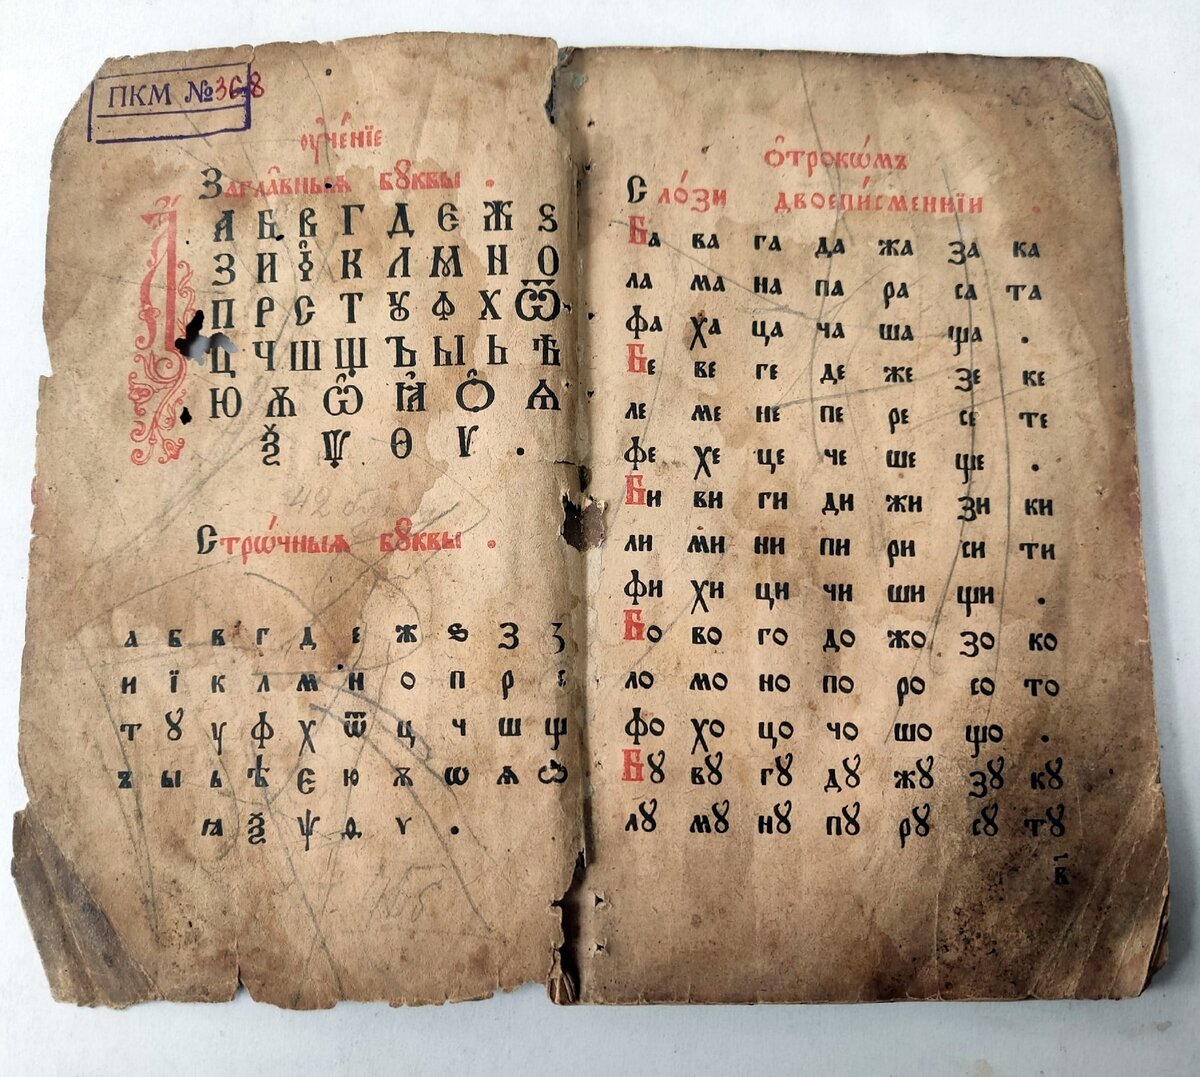 ПКМ №368
ᲂу҆че́нїе
Загла̑вныѧ бꙋквы .
А Б В Г Д Є Ж Ѕ
З И Ї К Л М Н О
П Р С Т Ꙋ Ф Х Ѿ
Ц Ч Ш Щ Ъ Ы Ь Ѣ
Ю Ѫ Ѽ Ꙗ О̑ Ѧ
Ѯ Ѱ Ѳ Ѵ .
Стрѡ́чныѧ бꙋквы .
а б в г д е ж ѕ з ꙁ
и ї к л м н о п р с
т ꙋ у ф х ѿ ц ч ш щ
ъ ы ь ѣ є ю ѫ ѡ ѧ ѽ
ꙗ ѯ ѱ ѳ ѵ .
ѻ҆трокѡ́мъ
Сло́зи двоепи́сменнїи .
Ба ва га да жа за ка
ла ма на па ра са та
фа ха ца ча ша ща .
Бе ве ге де же зе ке
ле ме не пе ре се те
фе хе це че ше ще .
Би ви ги ди жи зи ки
ли ми ни пи ри си ти
фи хи ци чи ши щи .
Бо во го до жо зо ко
ло мо но по ро со то
фо хо цо чо шо що .
Бꙋ вꙋ гꙋ дꙋ жꙋ зꙋ кꙋ
лꙋ мꙋ нꙋ пꙋ рꙋ сꙋ тꙋ
в